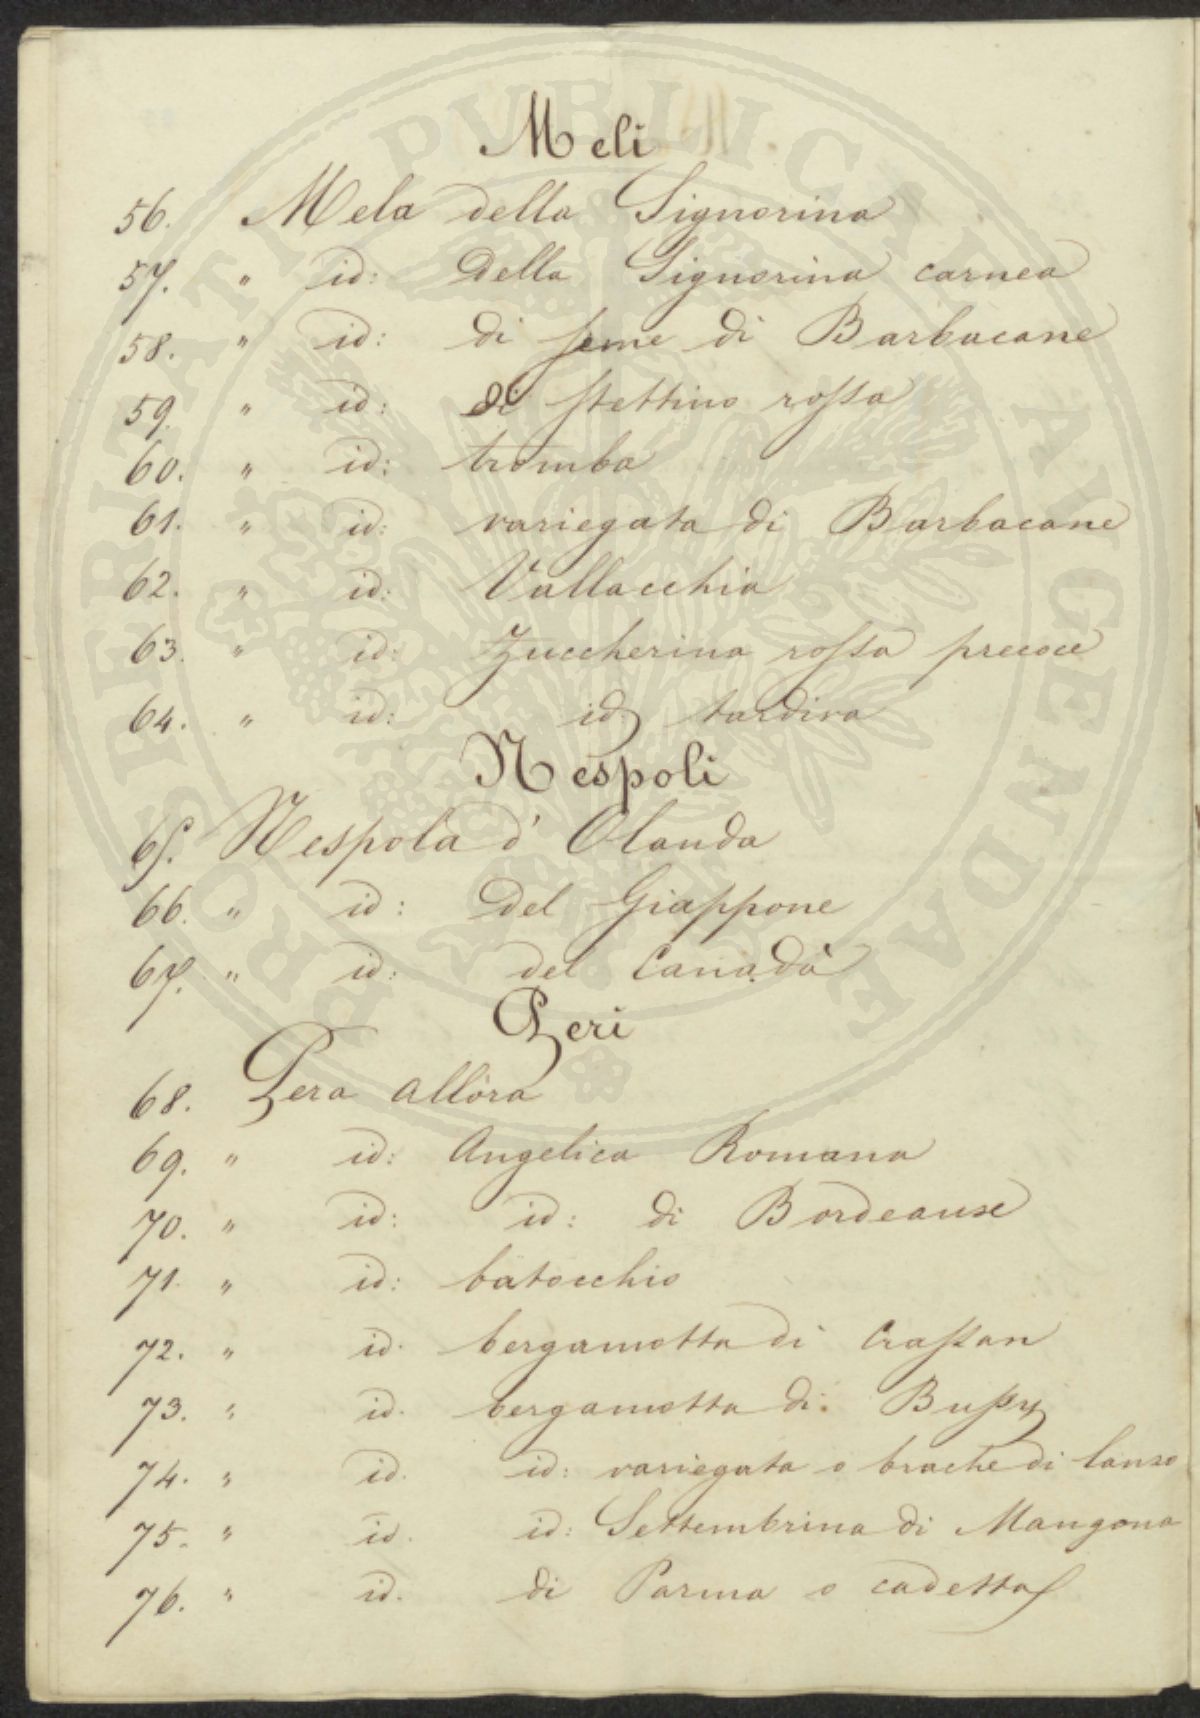 Meli
56. Mela della Signorina
57. " id: della Signorina carnea
58. " id: di seme di Barbacane
59. " id: di Stettino rossa
60. " id: tromba
61. " id: variegata di Barbacane
62. " id: Vallacchia
63. " id: Zuccherina rossa precoce
64. " id: id: tardiva
Nespoli
65. Nespola d'Olanda
66. " id: del Giappone
67. " id: del Canadà
Peri
68. Pera allòra
69. " id: Angelica Romana
70. " id: id: di Bordeause
71. " id: batocchio
72. " id. bergamotta di Crassan
73. " id. bergamotta di Bussy
74. " id. id: variegata o brache di lanso
75. " id. id: Settembrina di Mangona
76. " id. di Parma o cadetta
PROSPERITATI PVBLICAE AVGENDAE